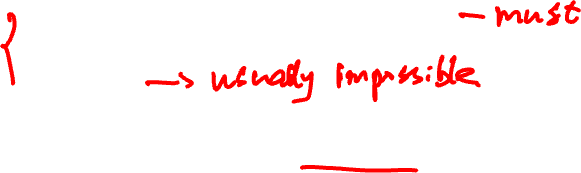 - must
→ usually impossible